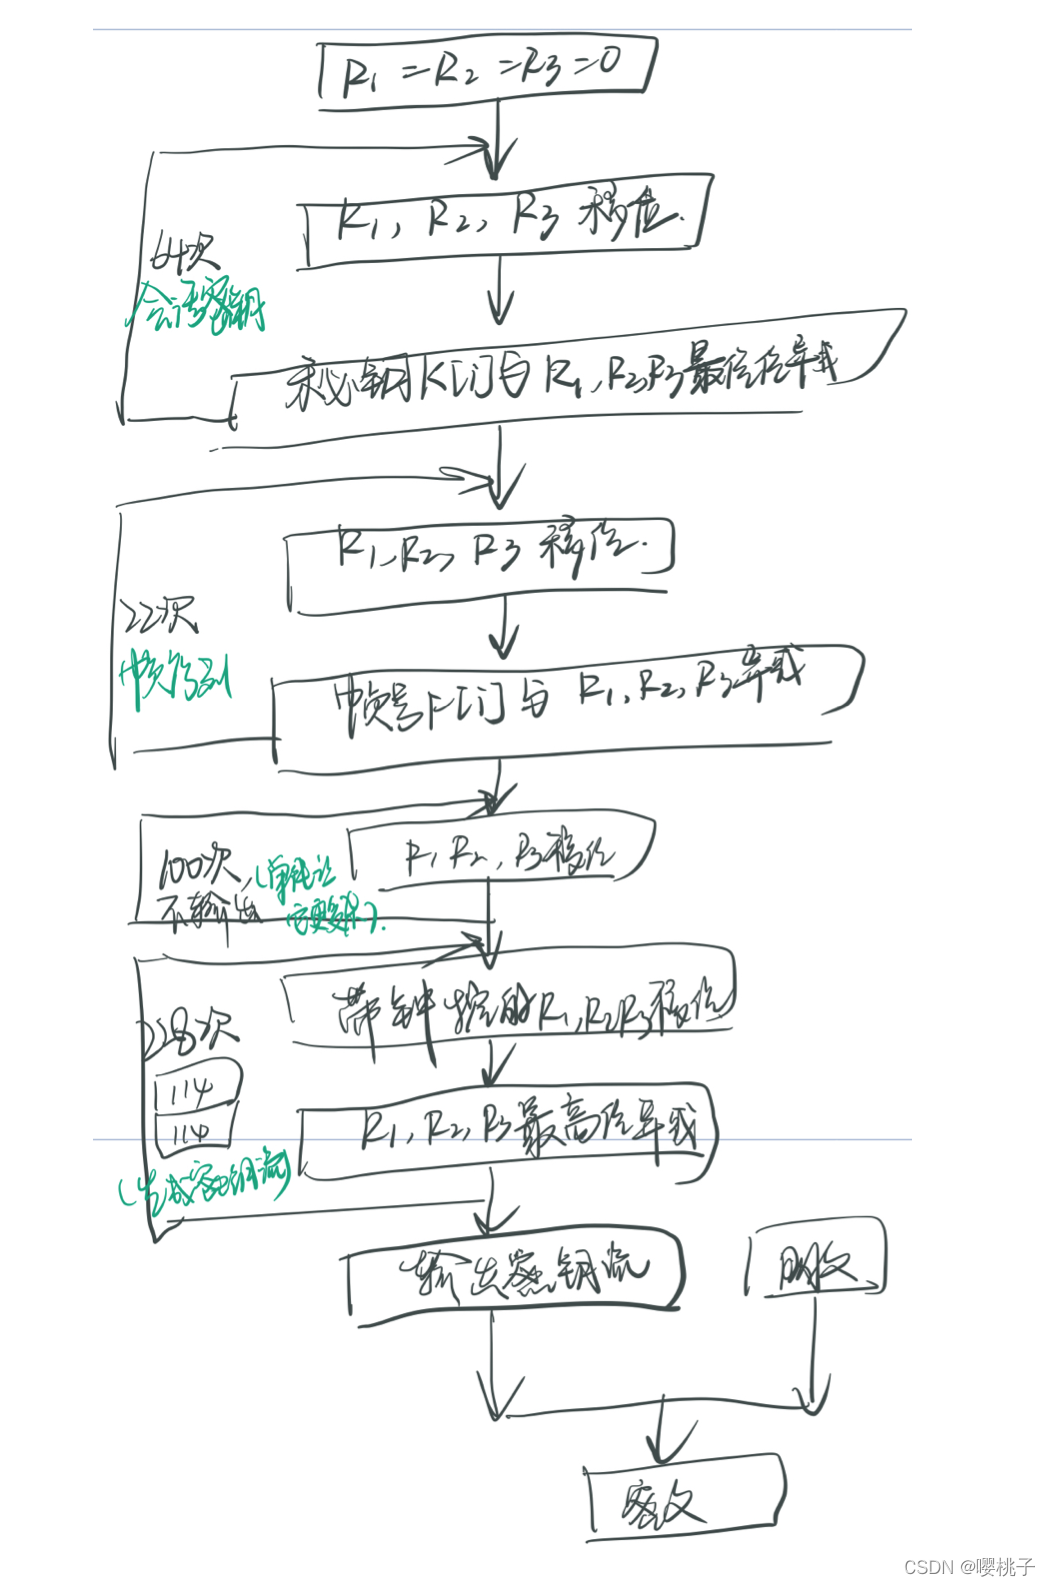 R1=R2=R3=0
R1, R2, R3 移位.
64次
会话密钥
秘钥K[i]与R1,R2,R3最低位异或
R1,R2, R3 移位.
22次
帧序列
帧号F[i]与 R1,R2,R3异或
R1 R2, R3移位
100次,
不输出
带钟控的R1,R2,R3移位
228次
114
114
R1, R2, R3最高位异或
(生成密钥流)
输出密钥流
明文
密文
CSDN @嘤桃子